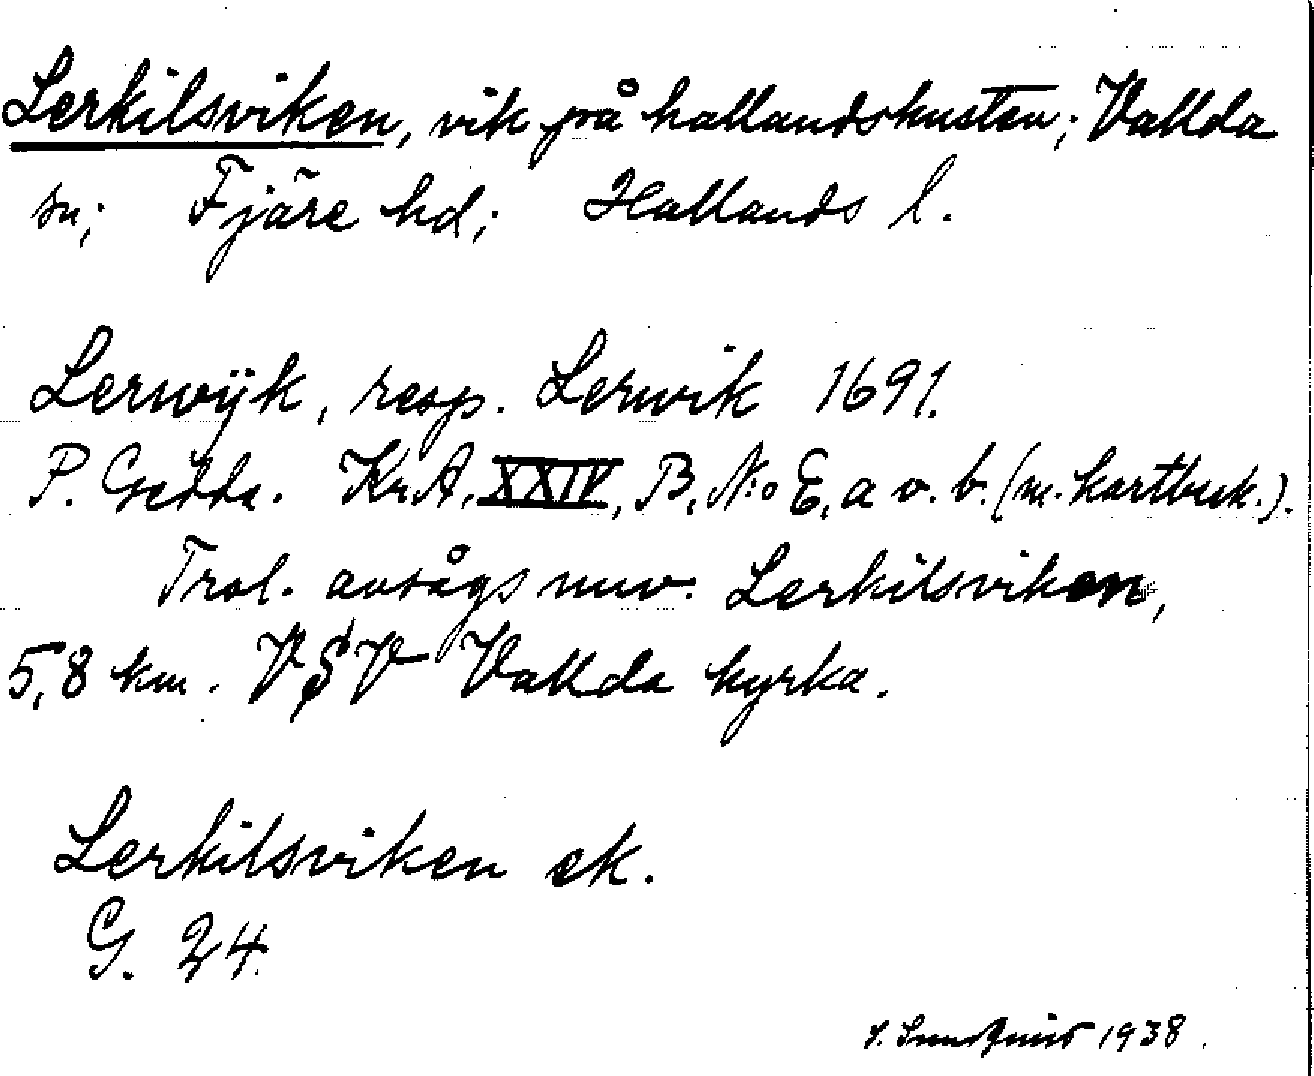 Lerkilsviken, vik på hallandskusten; Vallda
sn; Fjäre hd; Hallands l.
Lerwijk, resp. Lerwik 1691.
P. Gedda. Kr.A. XXIV, B. N:o E, a o. b. (m. kartbesk.).
Trol. avsågs nuv. Lerkilsviken,
5,8 km. VSV Vallda kyrka.
Lerkilsviken ek.
G. 24.
Sundquist 1938.